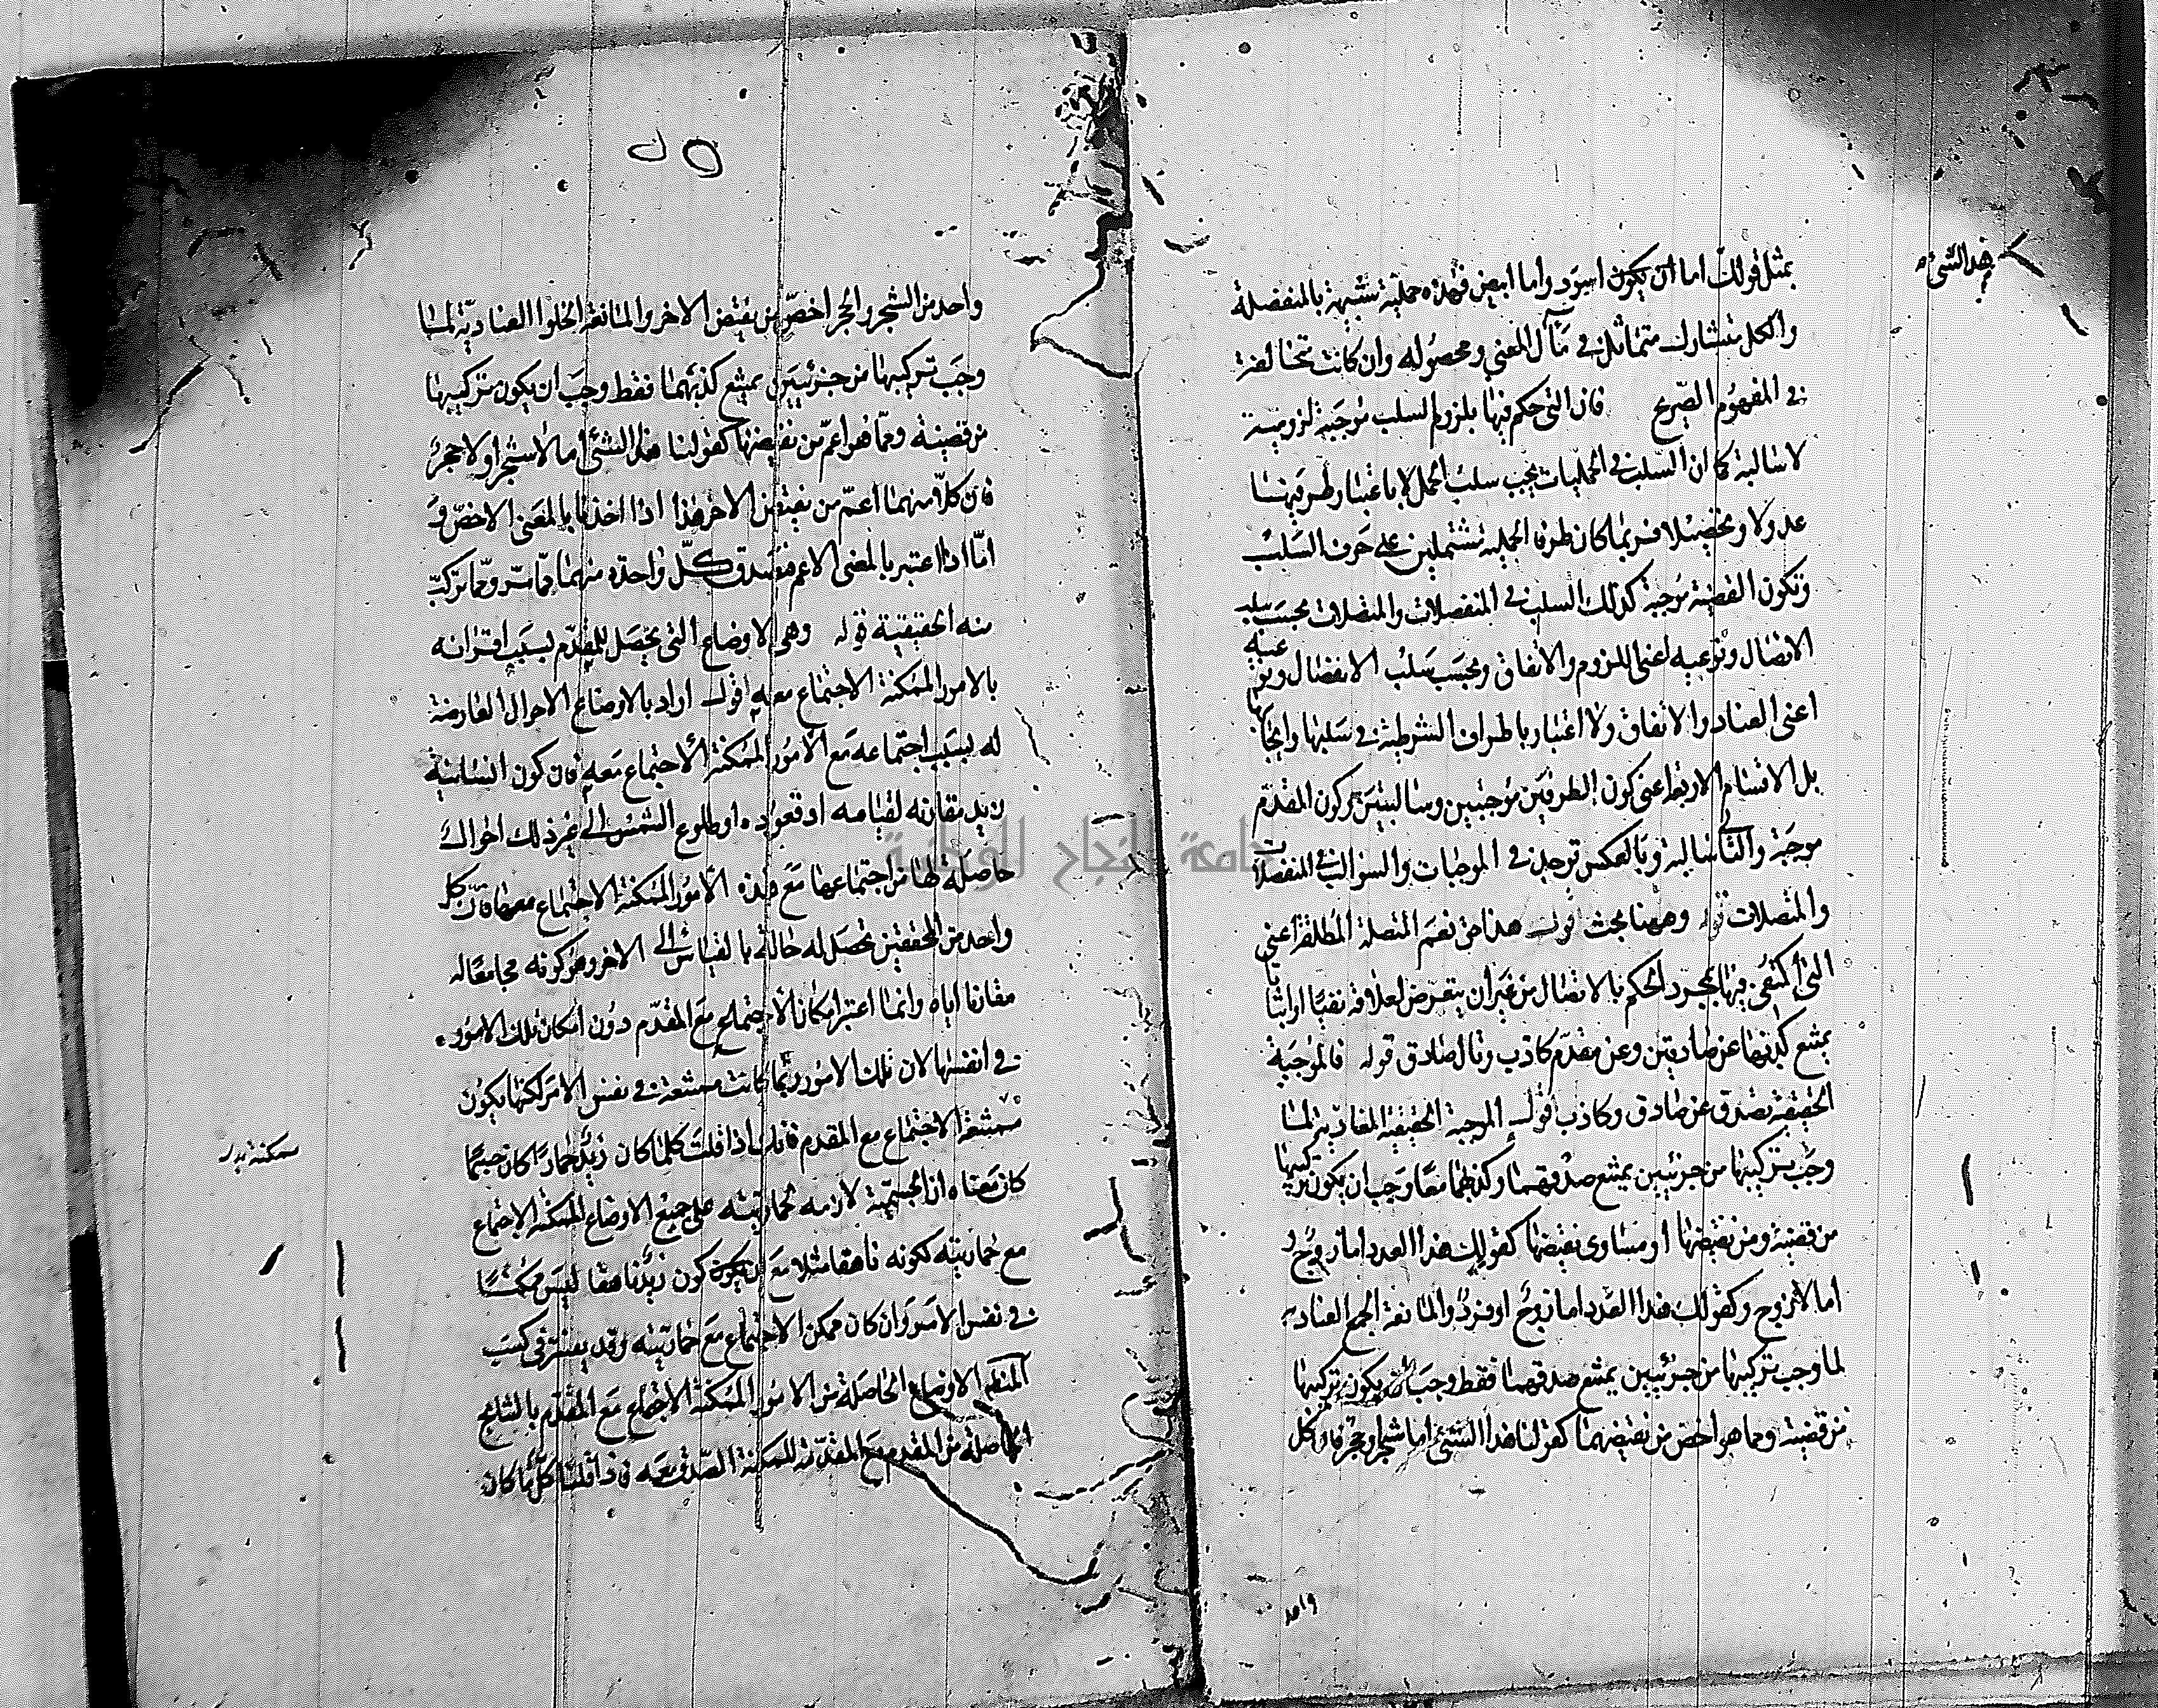 هذا الشئ
بمثل قولك اما ان يكون اسود واما ابيض فهذه حملية شبيهة بالمنفصلة
والكل متشارك متماثل في مآل المعنى ومحصوله وان كانت تخالفه
في المفهوم الصريح فان التى حكم فيها بلزوم السلب موجبة لزومية
لا سالبة كما ان السلب في الحمليات بحسب سلب الحمل لا باعتبار طرفيها
عدولا وتحصيلا فربما كان طرفا الحملية مشتملين على حرف السلب
وتكون القضية موجبة كذلك السلب في المتصلات والمنفصلات بحسب سلب
الاتصال ونوعيه اعنى اللزوم والاتفاق وبحسب سلب الانفصال ونوعيه
اعنى العناد والاتفاق ولا اعتبار باطراف الشرطية في سلبها وايجابها
بل الاقسام الاربعة اعنى كون الطرفين موجبين وسالبتين وكون المقدم
موجبة والتالى سالبة وبالعكس توجد في الموجبات والسوالب في المنفصلات
والمتصلات قوله وههنا بحث اقول هذا من تعم المتصلة المطلقة اعنى
التى اكتفى فيها بمجرد الحكم بالاتصال من غير ان يتعرض لعلاقة نفيا او اثباتا
يمتنع كذبها عن صادقين وعن مقدم كاذب وتال صادق قوله فالموجبة
الحقيقية تصدق عن صادق وكاذب اقول الموجبة الحقيقية العنادية لما
وجب تركيبها من جزئين يمتنع صدقهما وكذبهما معا وجب ان يكون تركيبها
من قضية ومن نقيضها او مساوى نقيضها كقولك هذا العدد اما زوج و
اما لا زوج وكقولك هذا العدد اما زوج او فرد والمانعة الجمع العنادية
لما وجب تركيبها من جزئيين يمتنع صدقهما فقط وجب ان يكون تركيبها
من قضية ومما هو اخص من نقيضهما كقولنا هذا الشئ اما شجر او حجر فان كل
واحد
واحد من الشجر والحجر اخص من نقيض الاخر والمانعة الخلو العنادية لما
وجب تركيبها من جزئيين يمتنع كذبهما فقط وجب ان يكون تركيبها
من قضية ومما هو اعم من نقيضها كقولنا هذا الشئ اما لا شجر او لا حجر
فان كلا منهما اعم من نقيض الاخر هذا اذا اخذتا بالمعنى الاخص و
اما اذا اعتبر بالمعنى الاعم فتصدق كل واحدة منهما مما مر ومما تركب
منه الحقيقية قوله وهى الاوضاع التى تحصل للمقدم بسبب اقترانه
بالامور الممكنة الاجتماع معه اقول اراد بالاوضاع الاحوال العارضة
له بسبب اجتماعه مع الامور الممكنة الاجتماع معه فان كون انسانية
زيد مقارنة لقيامه او قعوده او طلوع الشمس الى غير ذلك احوال
حاصلة لها من اجتماعها مع هذه الامور الممكنة الاجتماع معها فان كل
واحد من المحققين تحصل له حالة بالقياس الى الاخر وهو كونه مجامعا له
مقارنا اياه وانما اعتبر امكان الاجتماع مع المقدم دون امكان تلك الامور
في انفسها لان تلك الامور ربما كانت ممتنعة في نفس الامر لكنها يكون
ممتنعة الاجتماع مع المقدم فانك اذا قلت كلما كان زيد حمارا كان جسما
ممكنة
كان معناه ان الجسمية لازمة لحماريته على جميع الاوضاع الممكنة الاجتماع
مع حماريته ككونه ناهقا مثلا مع ان كون زيد ناهقا ليس ممكنا
في نفس الامر وان كان ممكن الاجتماع مع حماريته وقد يفسر في كتب
المنطق الاوضاع الحاصلة من الامور الممكنة الاجتماع مع المقدم بالنتائج
الحاصلة من المقدم مع المقدمة الممكنة الصدق معه فاذا قلنا كلما كان